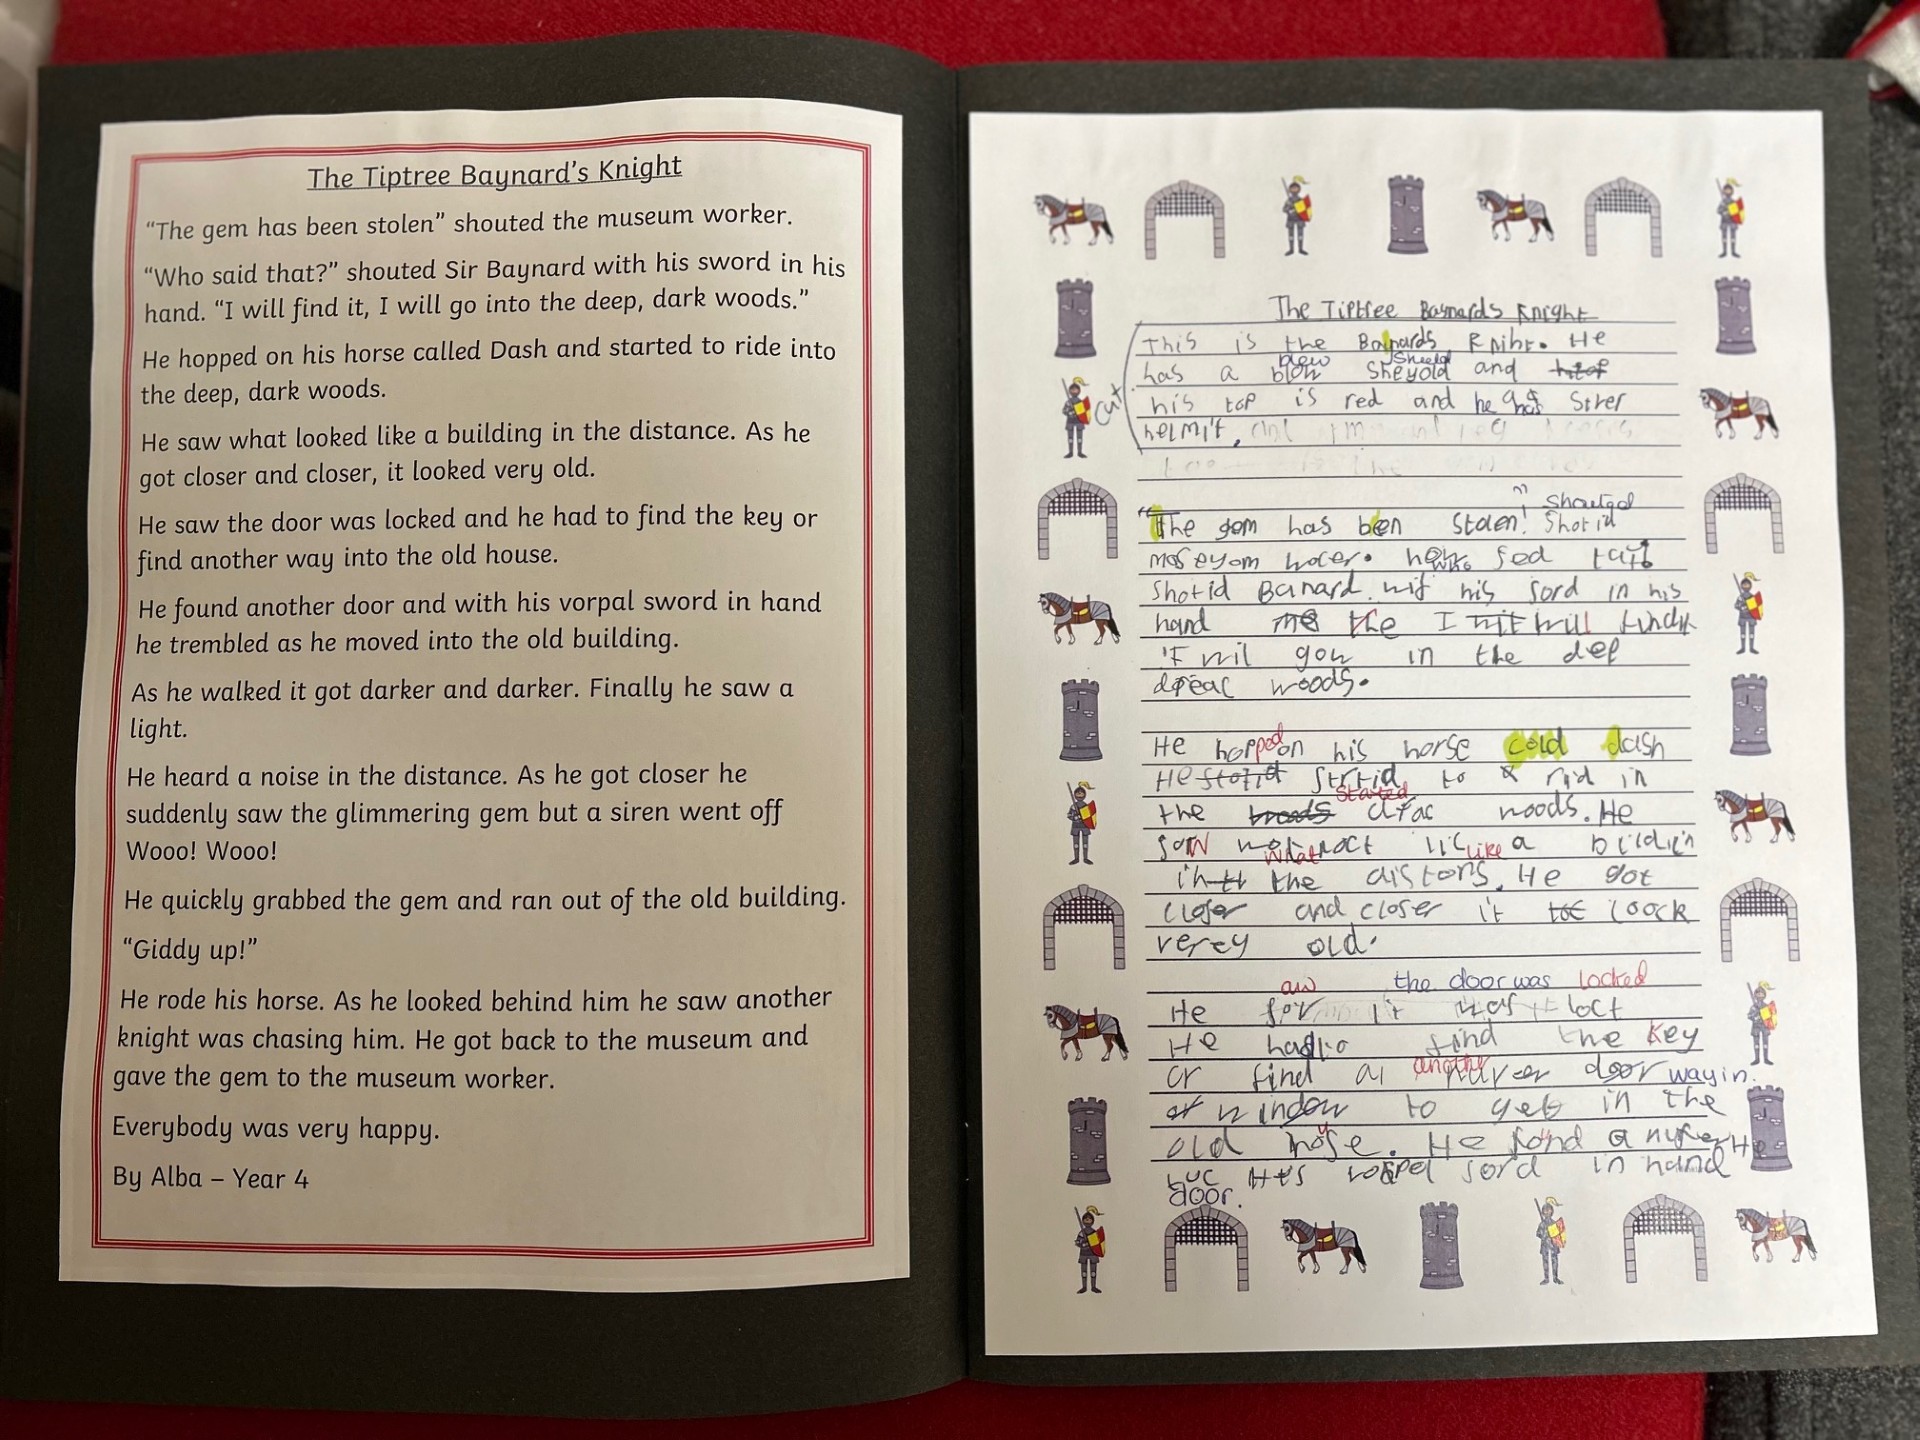 The Tiptree Baynard's Knight
“The gem has been stolen” shouted the museum worker.
“Who said that?” shouted Sir Baynard with his sword in his
hand. “I will find it, I will go into the deep, dark woods.”
He hopped on his horse called Dash and started to ride into
the deep, dark woods.
He saw what looked like a building in the distance. As he
got closer and closer, it looked very old.
He saw the door was locked and he had to find the key or
find another way into the old house.
He found another door and with his vorpal sword in hand
he trembled as he moved into the old building.
As he walked it got darker and darker. Finally he saw a
light.
He heard a noise in the distance. As he got closer he
suddenly saw the glimmering gem but a siren went off
Wooo! Wooo!
He quickly grabbed the gem and ran out of the old building.
“Giddy up!”
He rode his horse. As he looked behind him he saw another
knight was chasing him. He got back to the museum and
gave the gem to the museum worker.
Everybody was very happy.
By Alba – Year 4
The Tiptree Baynards Knight
This is the Baynards Kniht. He
blew Sheild
has a blow Sheyold and
Cut
his top is red and he has Silver
helmit,
Shouted
"The gem has ben Stolen!" Shotid
moseyom wocer. who sed tat
Shotid Banard. wif his Sord in his
hand the I will findit
I wil gow in the dep
woods.
He hopped on his horse cold dash
He Strtid to rid in
Started
the woods. He
saw what loct lic like a bildin
in the distons. He got
closer and closer it loock
verey old.
aw the door was locked
He it was loct
He had to find the key
or find another door way in.
window to get in the
old house. He found a nufer He
His sord in hand
door.